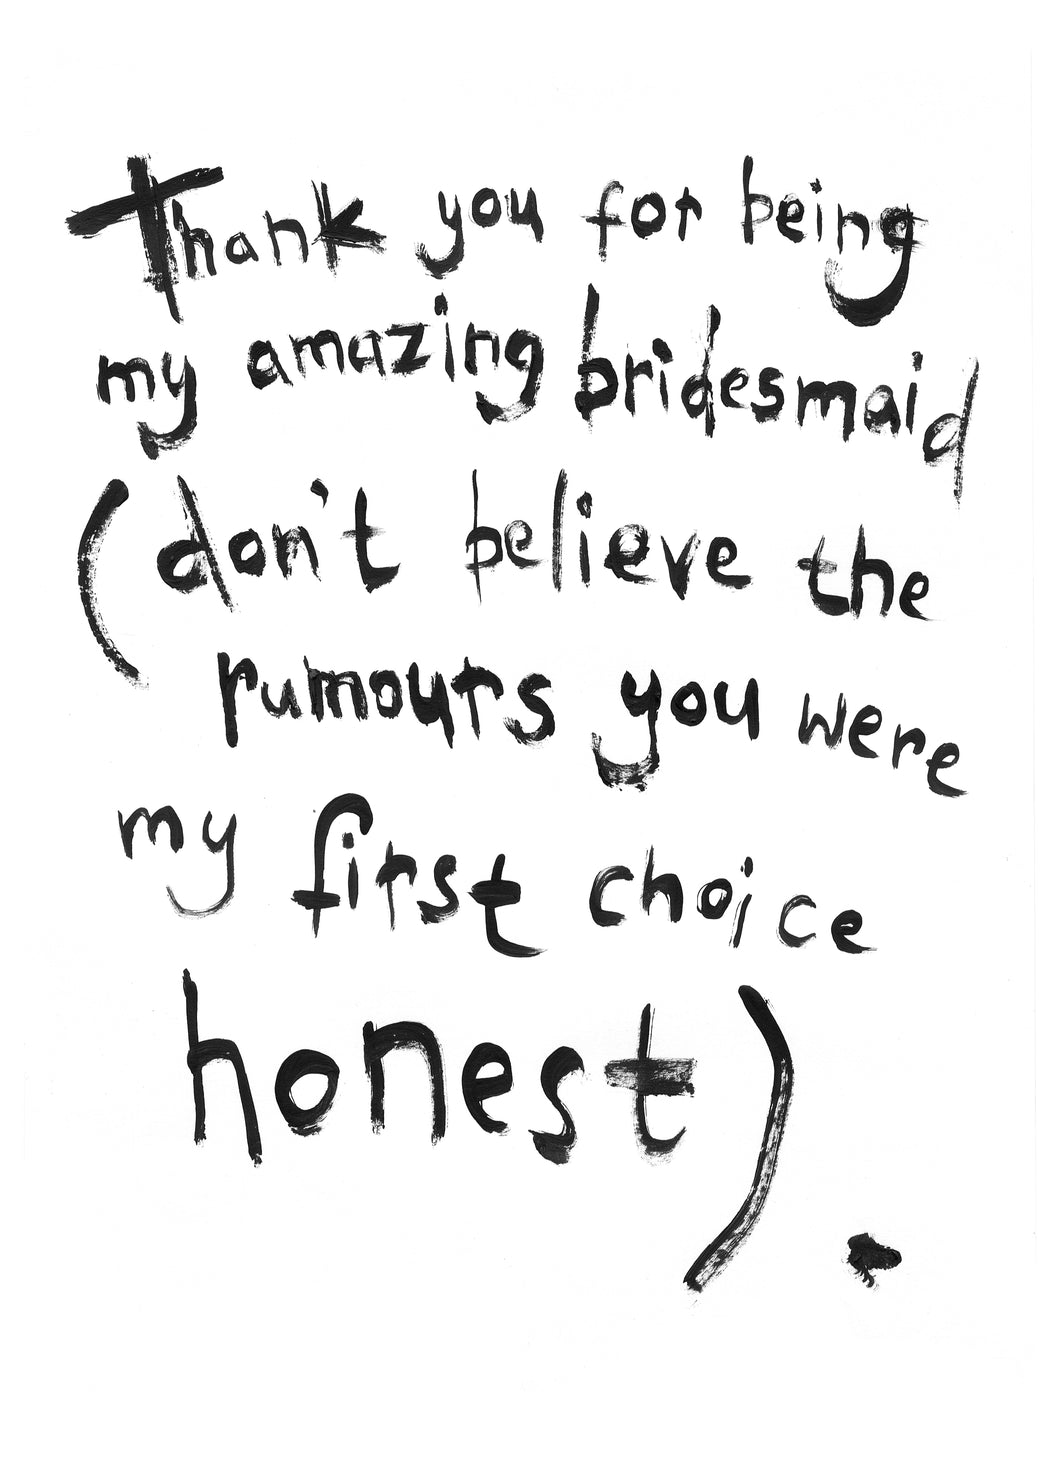 Thank you for being
my amazing bridesmaid
(don't believe the
rumours you were
my first choice
honest).